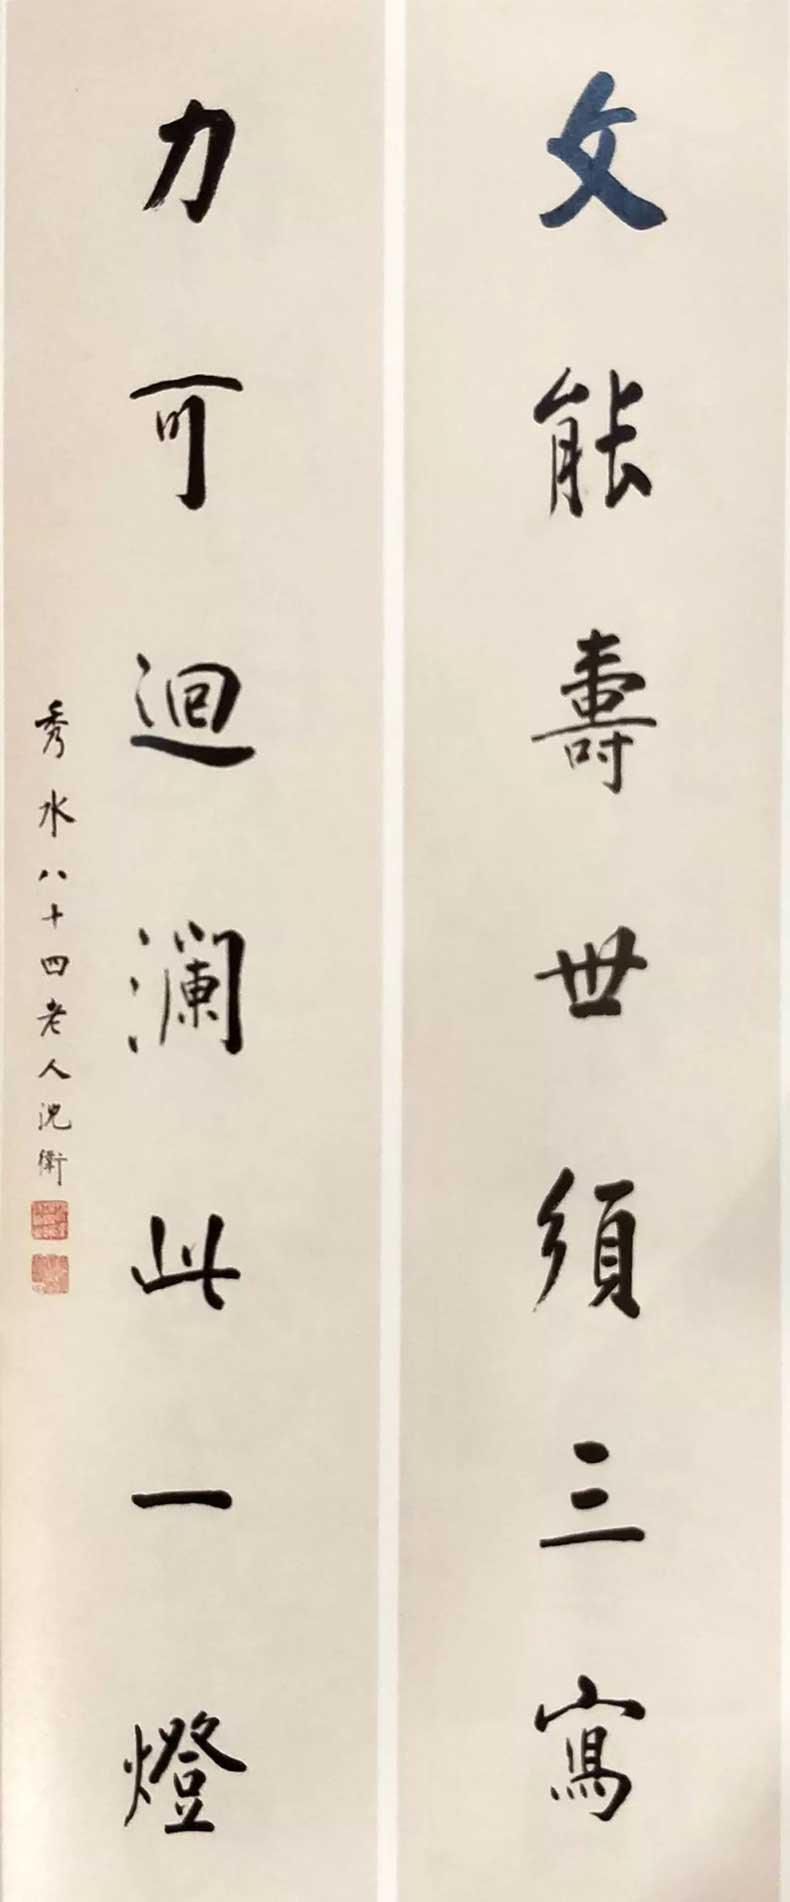 文能壽世須三寫
力可迴瀾此一燈
秀水八十四老人沈衛